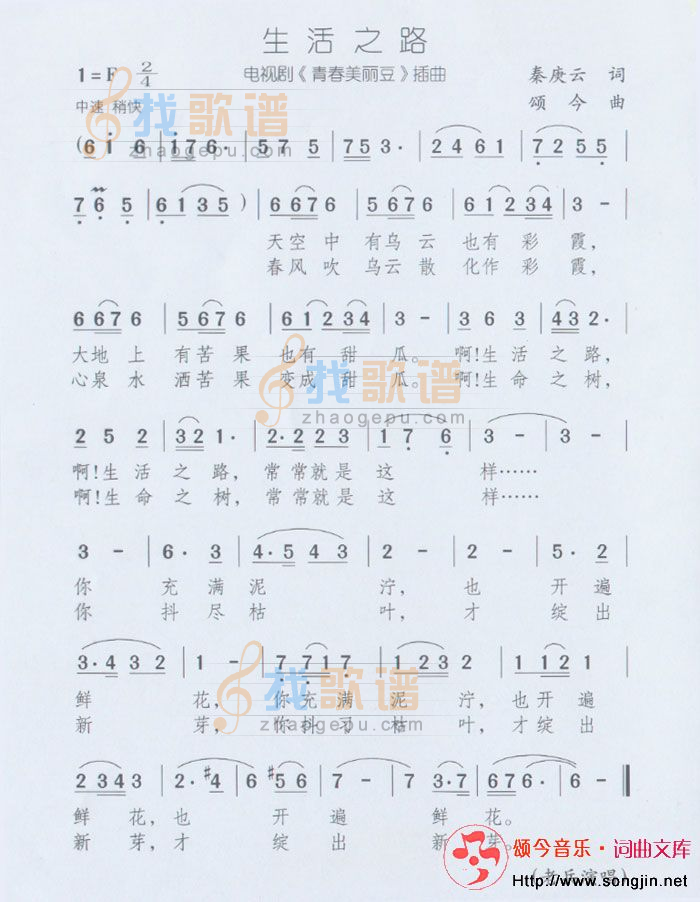 生活之路
1=F 2/4 电视剧《青春美丽豆》插曲 秦庚云 词
中速 稍快 颂今 曲
找歌谱
zhaogepu.com
(6 1 6 | 1·76· | 575 | 753· | 2461 | 7255 |
765 | 6135) | 6676 | 5676 | 61234 | 3 - |
天空中有乌云也有彩霞，
春风吹乌云散化作彩霞，
6676 | 5676 | 61234 | 3 - | 363 | 432· |
大地上有苦果也有甜瓜。啊！生活之路，
心泉水洒苦果变成甜瓜。啊！生命之树，
找歌谱
zhaogepu.com
252 | 321· | 2·223 | 176 | 3 - | 3 - |
啊！生活之路，常常就是这样……
啊！生命之树，常常就是这样……
3 - | 6·3 | 4·543 | 2 - | 2 - | 5·2 |
你充满泥泞，也开遍
你抖尽枯叶，才绽出
3·432 | 1 - | 7717 | 1232 | 1121 |
鲜花，你充满泥泞，也开遍
新芽，你抖尽枯叶，才绽出
找歌谱
zhaogepu.com
2343 | 2·#4 | 6#56 | 7 - | 73·7 | 676· | 6 - ‖
鲜花，也开遍鲜花。
新芽，才绽出新芽。
(老兵演唱)
颂今音乐·词曲文库
http://www.songjin.net